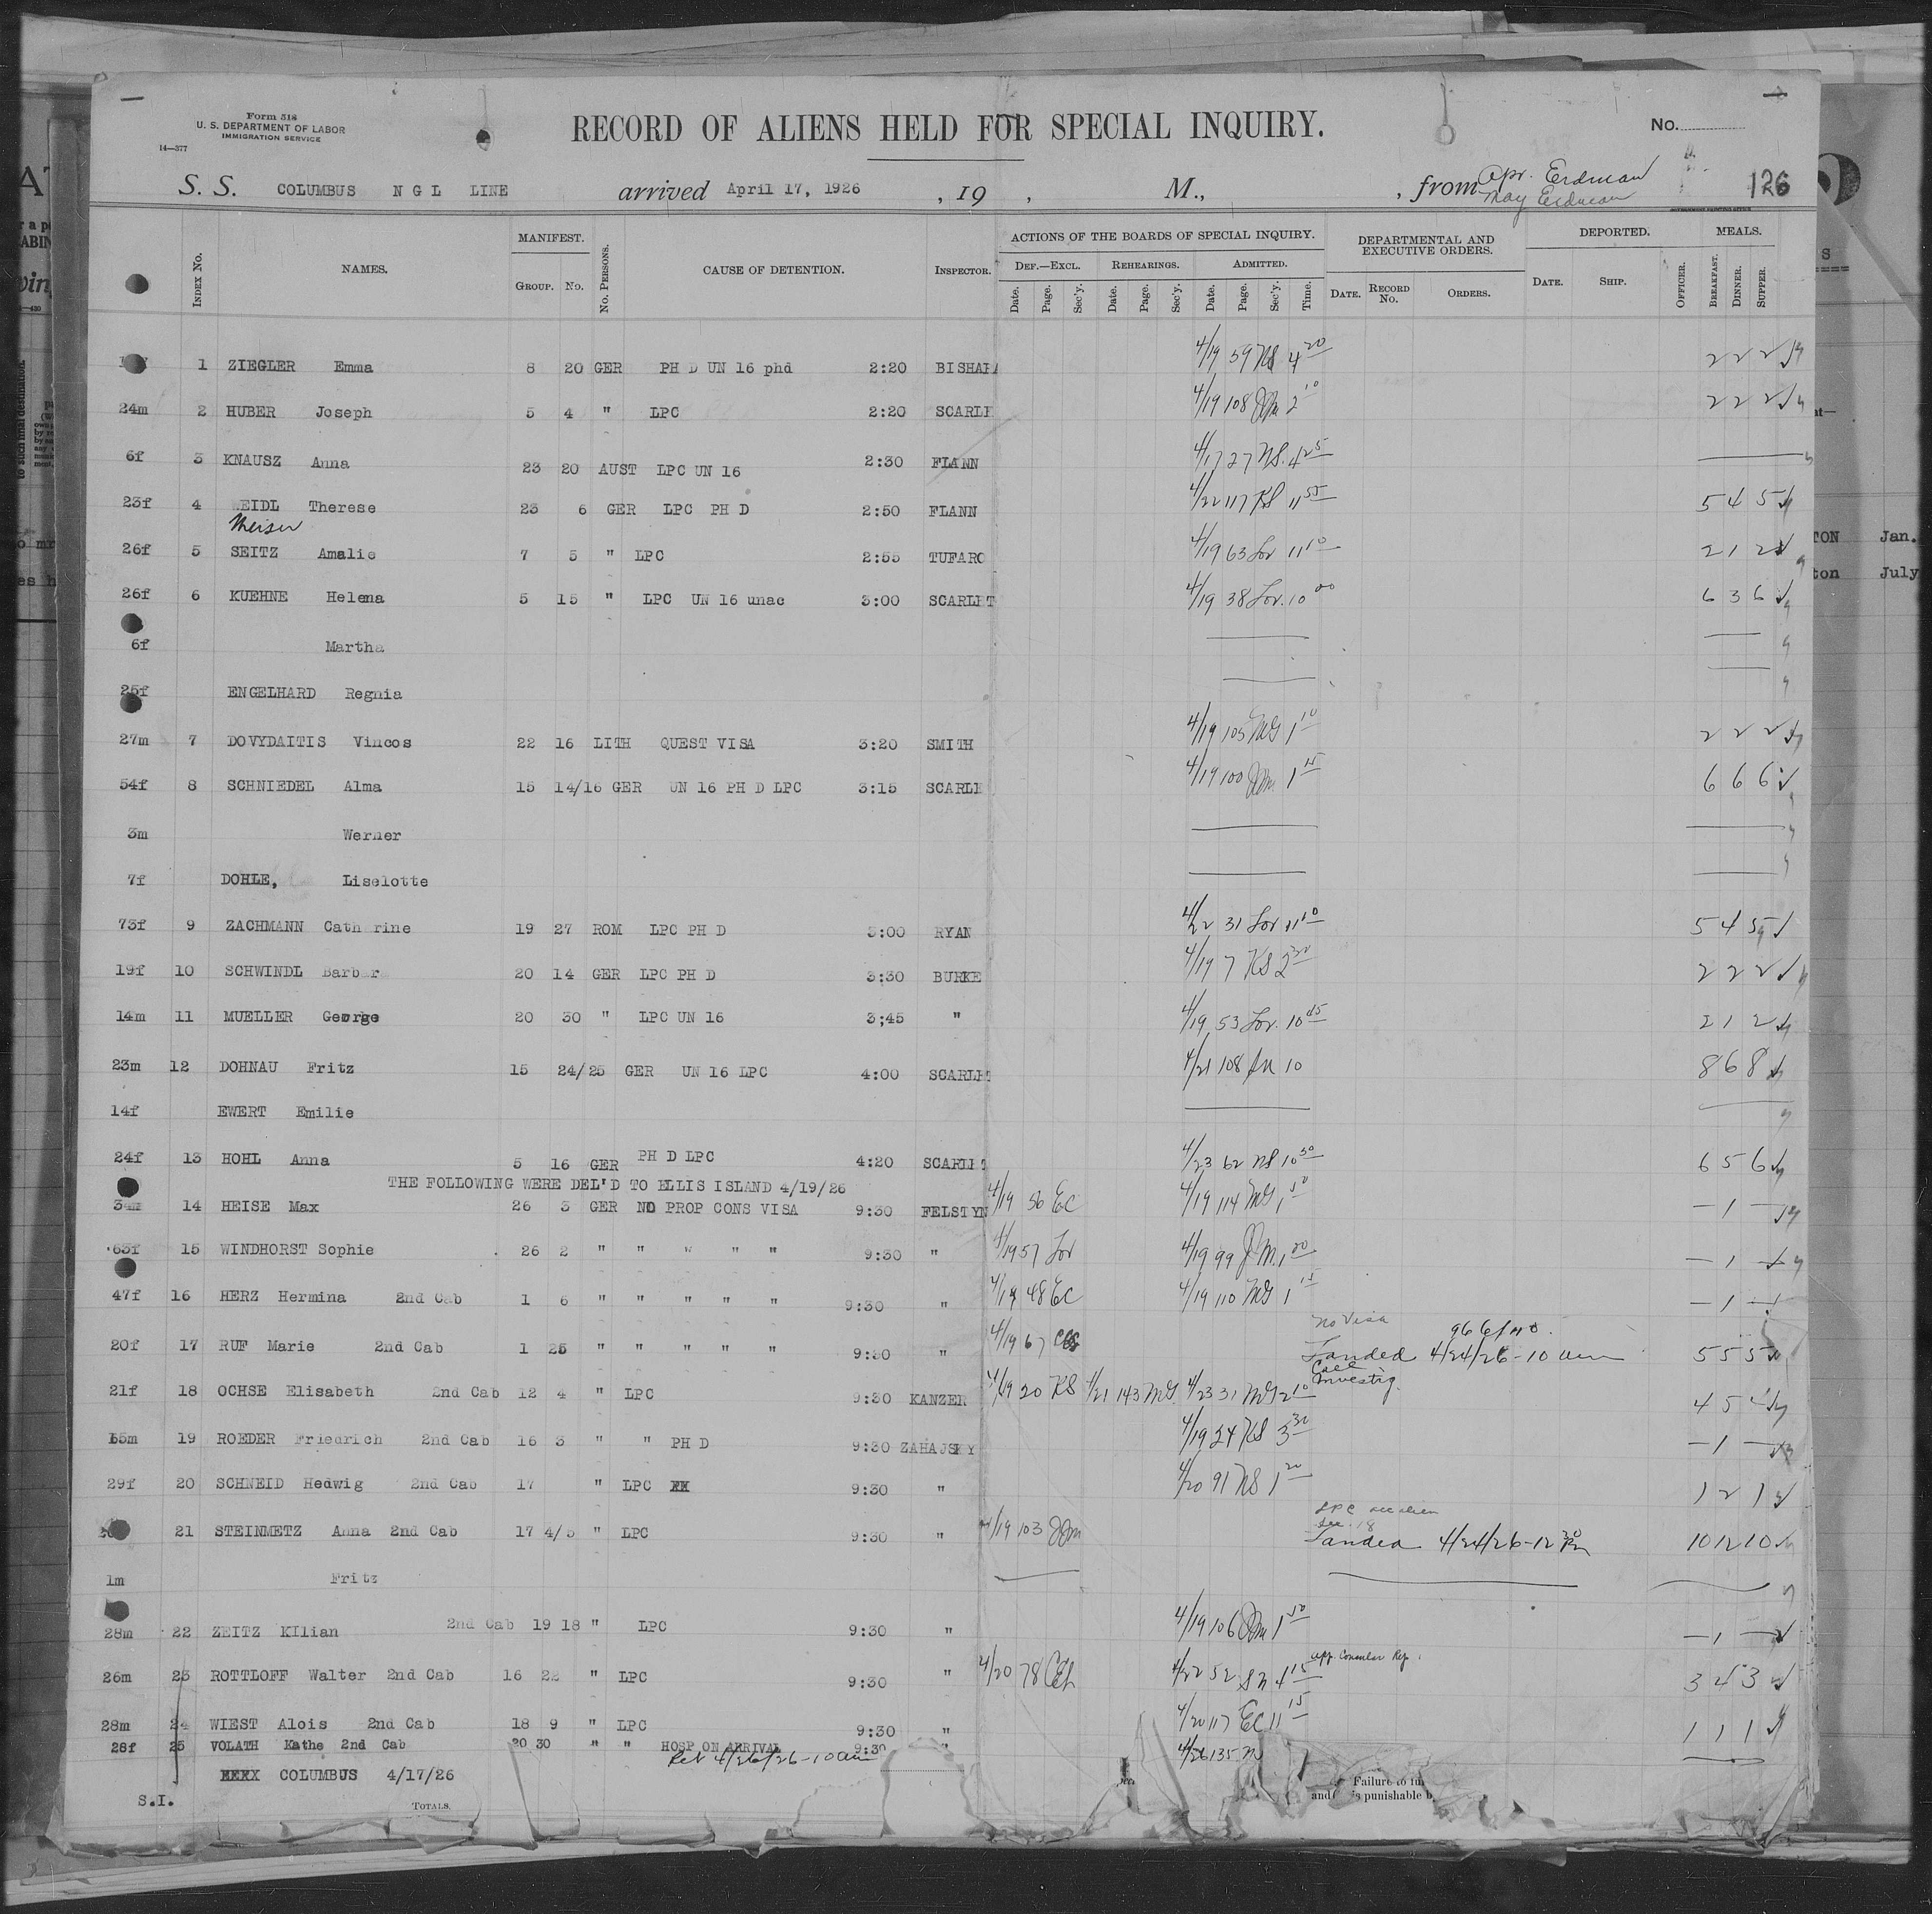 Form 518
U. S. DEPARTMENT OF LABOR
IMMIGRATION SERVICE
14—377
RECORD OF ALIENS HELD FOR SPECIAL INQUIRY.
No.
S. S. COLUMBUS N G L LINE arrived April 17, 1926 , 19 , M., , from Apr. Erdman
May Erdman
126
INDEX No. NAMES. MANIFEST. GROUP. No. No. PERSONS. CAUSE OF DETENTION. INSPECTOR. ACTIONS OF THE BOARDS OF SPECIAL INQUIRY. DEPARTMENTAL AND EXECUTIVE ORDERS. DEPORTED. MEALS.
DEF.—EXCL. REHEARINGS. ADMITTED.
Date. Page. Sec'y. Date. Page. Sec'y. Date. Page. Sec'y. Time. DATE. RECORD No. ORDERS. DATE. SHIP. OFFICER. BREAKFAST. DINNER. SUPPER.
1 ZIEGLER Emma 8 20 GER PH D UN 16 phd 2:20 BISHARA 4/19 59 NS 4 20 2 2 2
24m 2 HUBER Joseph 5 4 " LPC 2:20 SCARLE 4/19 108 JJm 2 10 2 2 2
6f 3 KNAUSZ Anna 23 20 AUST LPC UN 16 2:30 FLANN 4/17 27 NS. 4 25
23f 4 EIDL Therese 23 6 GER LPC PH D 2:50 FLANN 4/22 117 KS 11 55 5 4 5
26f 5 SEITZ Amalie 7 5 " LPC 2:55 TUFARO 4/19 63 Lov 11 10 2 1 2
26f 6 KUEHNE Helena 5 15 " LPC UN 16 unac 3:00 SCARLET 4/19 38 Lov. 10 00 6 3 6
6f Martha
25f ENGELHARD Regnia
27m 7 DOVYDAITIS Vincos 22 16 LITH QUEST VISA 3:20 SMITH 4/19 105 MG 1 10 2 2 2
54f 8 SCHNIEDEL Alma 15 14/16 GER UN 16 PH D LPC 3:15 SCARLE 4/19 100 JJm 1 15 6 6 6
3m Werner
7f DOHLE, Liselotte
73f 9 ZACHMANN Cath rine 19 27 ROM LPC PH D 3:00 RYAN 4/22 31 Lov 11 10 5 4 5
19f 10 SCHWINDL Barbar 20 14 GER LPC PH D 3:30 BURKE 4/19 7 KS 2 30 2 2 2
14m 11 MUELLER George 20 30 " LPC UN 16 3;45 " 4/19 53 Lov. 10 45 2 1 2
23m 12 DOHNAU Fritz 15 24/25 GER UN 16 LPC 4:00 SCARLET 4/21 108 10 8 6 8
14f EWERT Emilie
24f 13 HOHL Anna 5 16 GER PH D LPC 4:20 SCARLET 4/23 62 NS 10 30 6 5 6
THE FOLLOWING WERE DEL'D TO ELLIS ISLAND 4/19/26
34m 14 HEISE Max 26 3 GER NO PROP CONS VISA 9:30 FELSTYN 4/19 56 EC 4/19 114 MG 1 50 — 1 —
63f 15 WINDHORST Sophie 26 2 " " " " " 9:30 " 4/19 57 Lov 4/19 99 JM. 1 00 — 1 —
47f 16 HERZ Hermina 2nd Cab 1 6 " " " " " 9:30 " 4/19 48 EC 4/19 110 MG 1 15 — 1 —
No Visa
20f 17 RUF Marie 2nd Cab 1 25 " " " " " 9:30 " 4/19 67 Landed 4/24/26 - 10 am 5 5 5
Investig.
21f 18 OCHSE Elisabeth 2nd Cab 12 4 " LPC 9:30 KANZER 4/19 20 KS 4/21 143 MG 4/23 31 MG 2 10 4 5
15m 19 ROEDER Friedrich 2nd Cab 16 3 " " PH D 9:30 ZAHAJSKY 4/19 24 KS 3 30 — 1 —
29f 20 SCHNEID Hedwig 2nd Cab 17 " LPC XX 9:30 " 4/20 91 NS 1 20 1 2 1
21 STEINMETZ Anna 2nd Cab 17 4/5 " LPC 9:30 " 4/19 103 JJm Landed 4/24/26 - 12 30 Pm 10 12 10
1m Fritz
28m 22 ZEITZ KIlian 2nd Cab 19 18 " LPC 9:30 " 4/19 106 JJm 1 50 — 1 —
26m 23 ROTTLOFF Walter 2nd Cab 16 22 " LPC 9:30 " 4/20 78 4/22 52 4 15 app Consular Rep. 3 4 3
28m 24 WIEST Alois 2nd Cab 18 9 " LPC 9:30 " 4/20 117 EC 11 15 1 1 1
28f 25 VOLATH Kathe 2nd Cab 20 30 " " HOSP ON ARRIVAL 9:30 " 4/26 135
Rel 4/26/26 - 10 am
COLUMBUS 4/17/26
S.I.
TOTALS.
Failure to
and is punishable